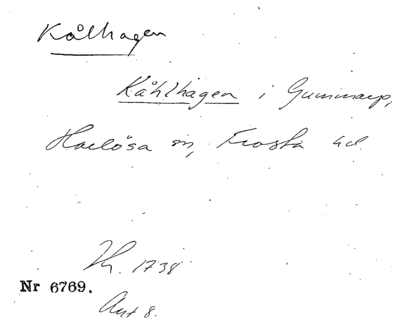 Kålhagen
Kåhlhagen i Gummarp,
Harlösa sn, Frosta hd.
Jb. 1738
Nr 6769.
Avt 8.